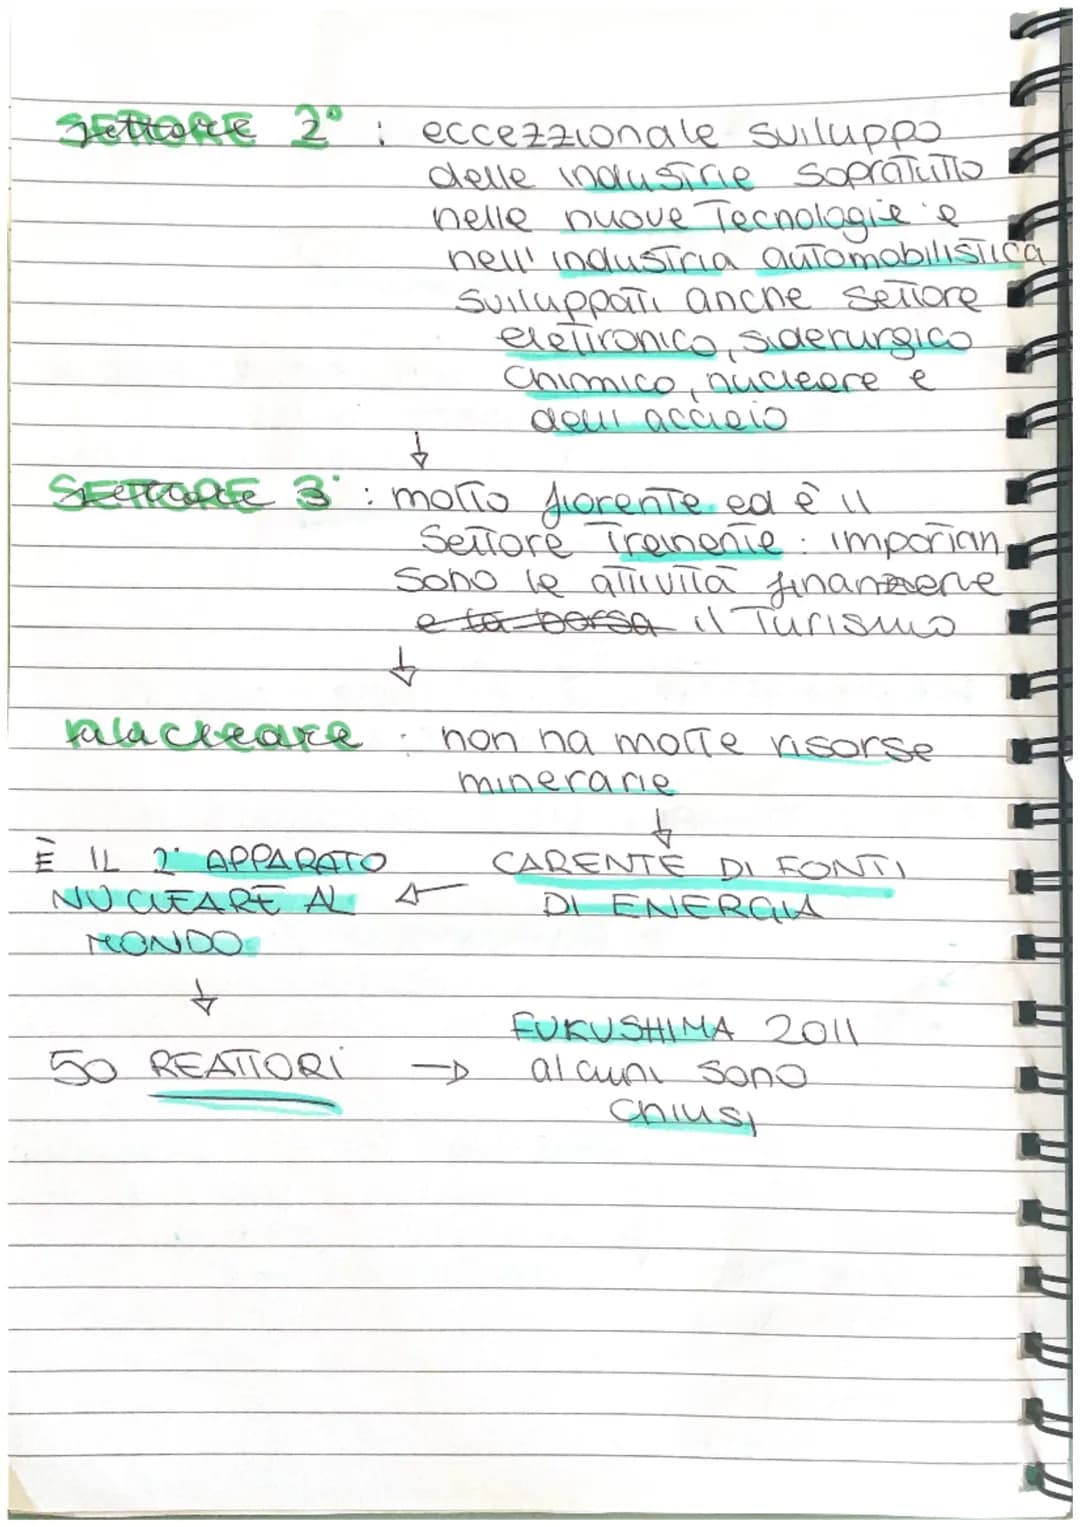 SETTORE 2° : eccezzionale sviluppo
delle industrie sopratutto
nelle nuove Tecnologie e
nell' industria automobilistica
sviluppati anche settore
elettronico, siderurgico
chimico, nucleare e
dell acciaio
↓
SETTORE 3° : molto fiorente ed è il
settore Trainante : importan
sono le attività finanziarie
e la borsa il Turismo
↓
nucleare : non ha molte risorse
minerarie
↓
È IL 2° APPARATO
NUCLEARE AL
MONDO
←
CARENTE DI FONTI
DI ENERGIA
↓
50 REATTORI →
FUKUSHIMA 2011
alcuni sono
chiusi